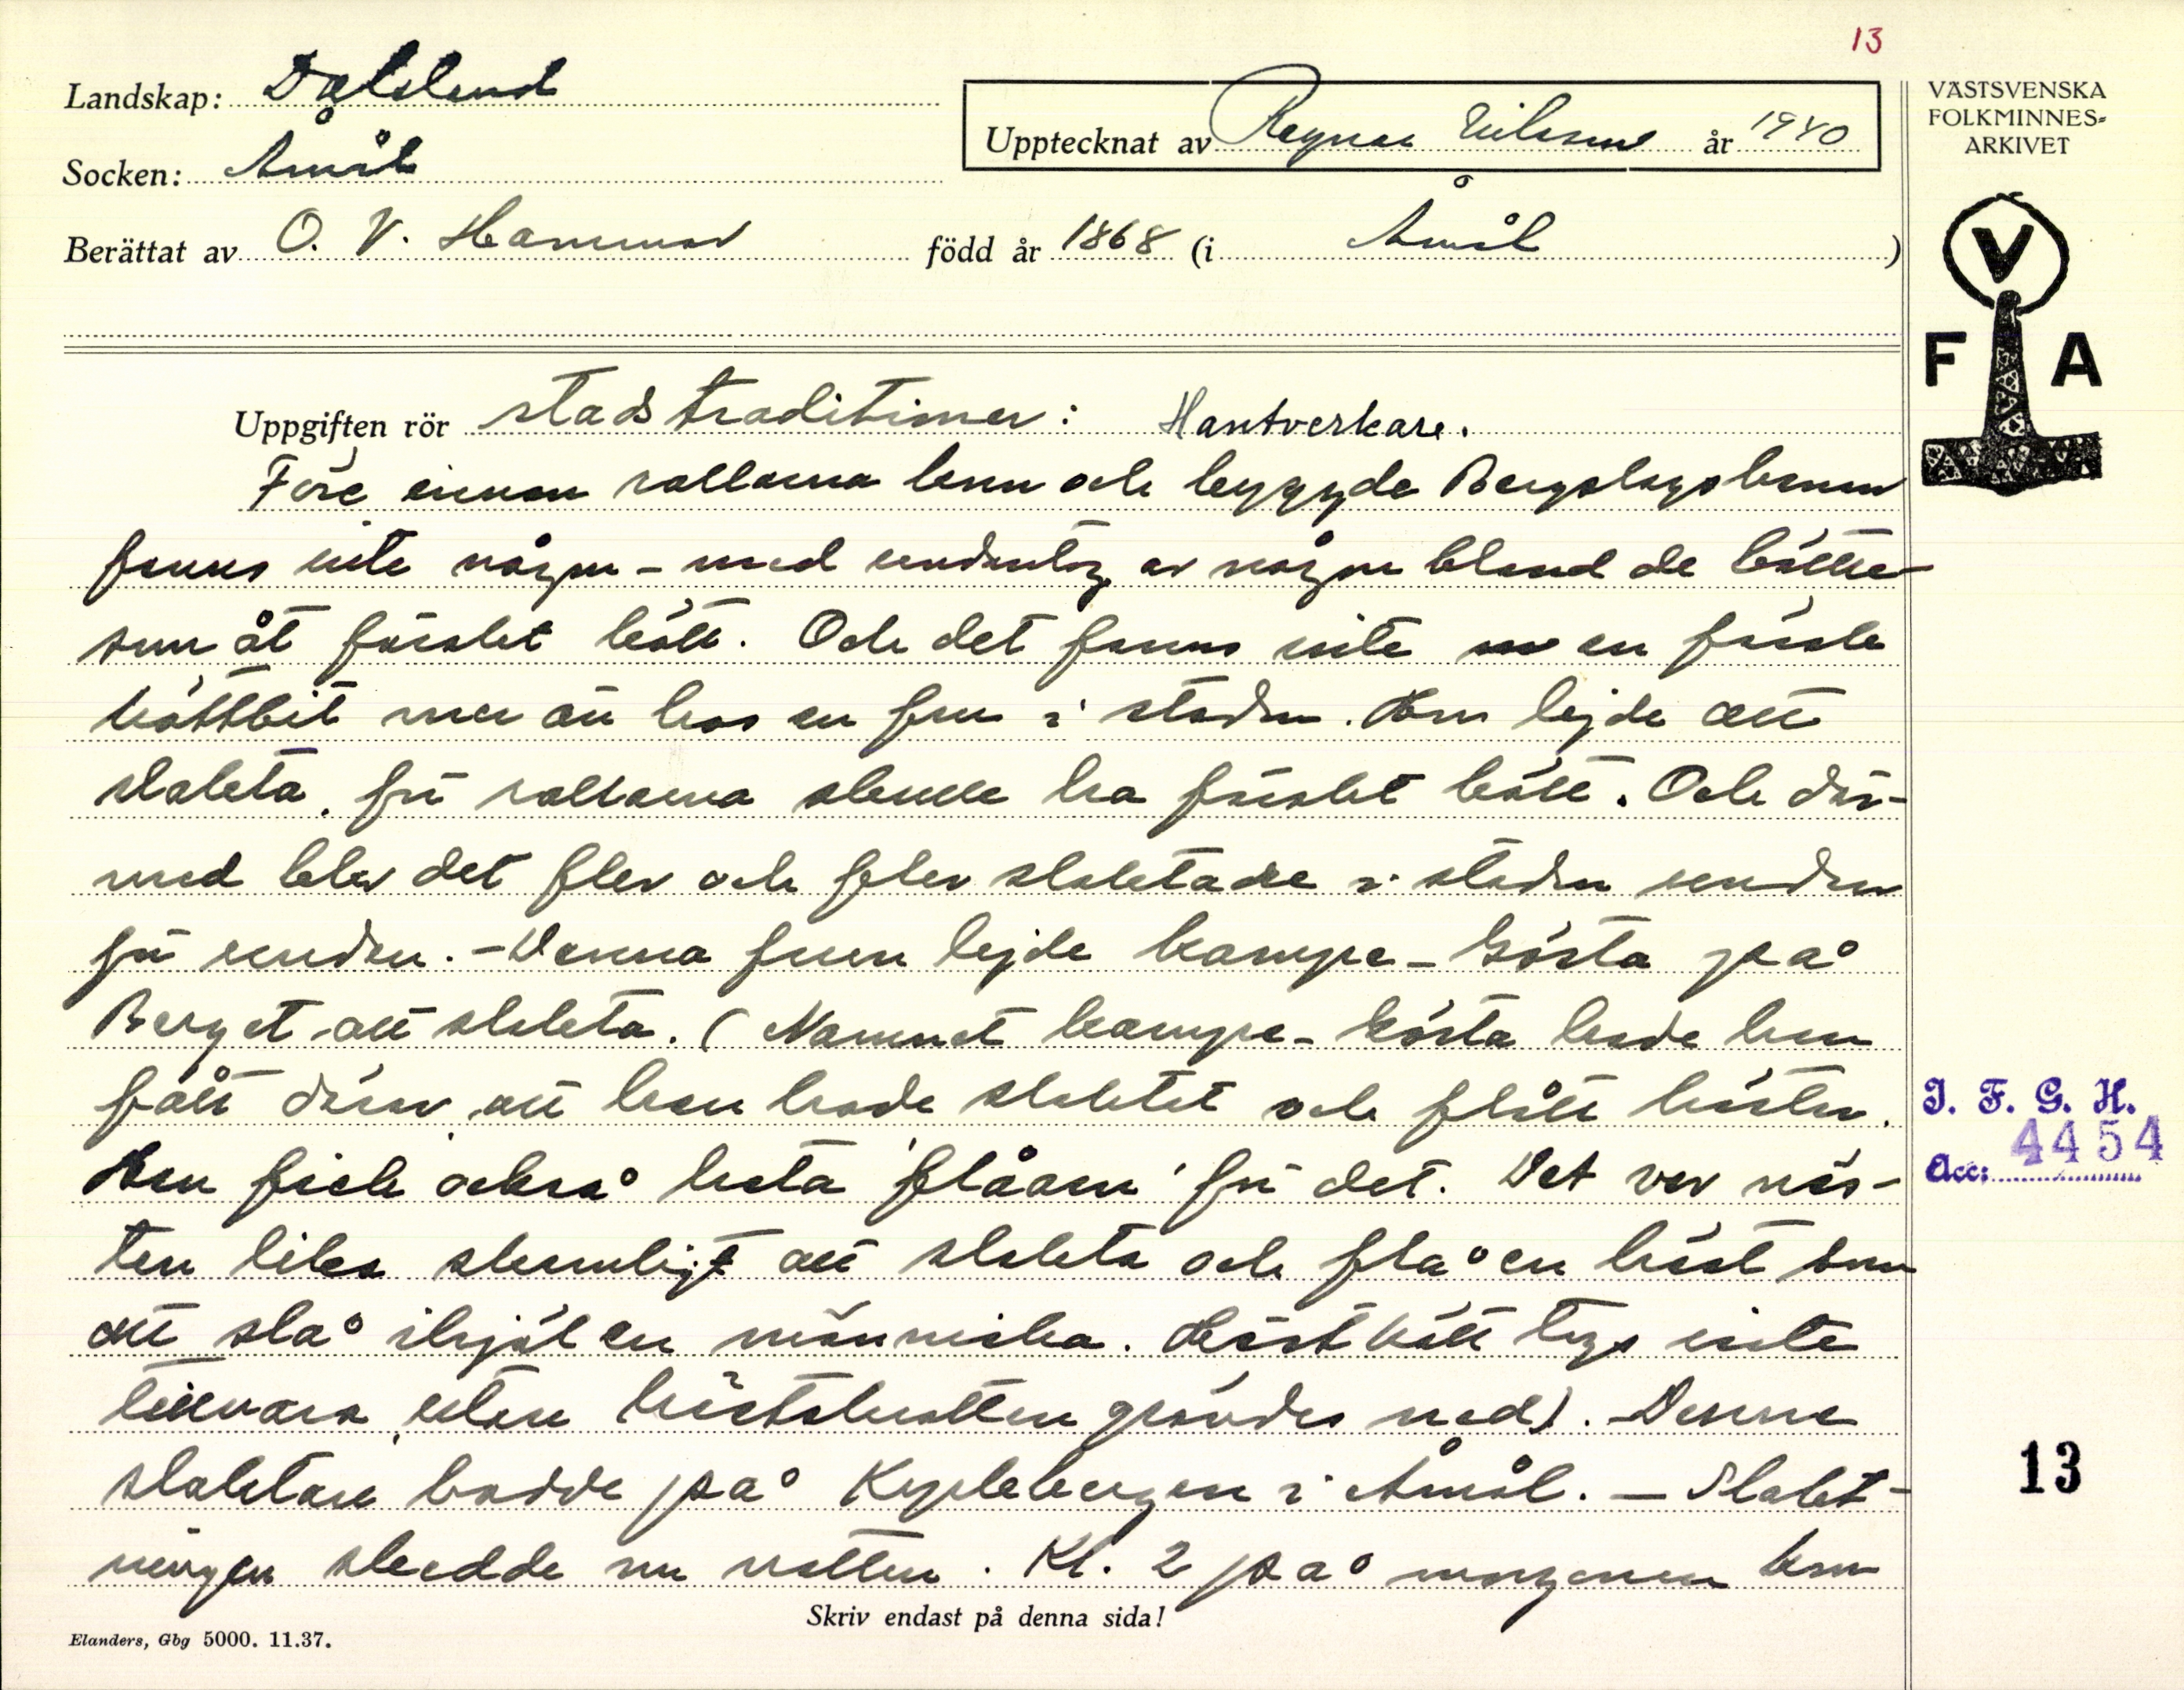 13
Landskap: Dalsland
Upptecknat av Ragnar Nilsson år 1940
VÄSTSVENSKA
FOLKMINNES=
ARKIVET
Socken: Åmål
Berättat av O. V. Hammar född år 1868 (i Åmål)
V
F A
Uppgiften rör stadstraditioner: Hantverkare.
Före innan rallarna kom och byggde Bergslagsbanan
fanns inte någon - med undantag av någon bland de bättre -
som åt färskt kött. Och det fanns inte en färsk
köttbit mer än hos en fru i staden. Hon lejde att
slakta, för rallarna skulle ha färskt kött. Och där-
med blev det fler och fler slaktare i staden undan
för undan. - Denna frun lejde Kampe-Gösta på
Berget att slakta. (Namnet Kampe-Gösta hade han
fått därav, att han hade slaktat och flått hästar.
Han fick också heta 'flåarn' för det. Det var näs-
ten lika skamligt att slakta och flå en häst som
att slå ihjäl en människa. Hästkött togs inte
tillvara, utan hästskrotten grävdes ned). - Denne
slaktare bodde på Kyrkebergen i Åmål. - Slakt-
ningen skedde om natten. Kl. 2 på morgonen kom
I. F. G. H.
Acc: 4454
13
Skriv endast på denna sida!
Elanders, Gbg 5000. 11.37.